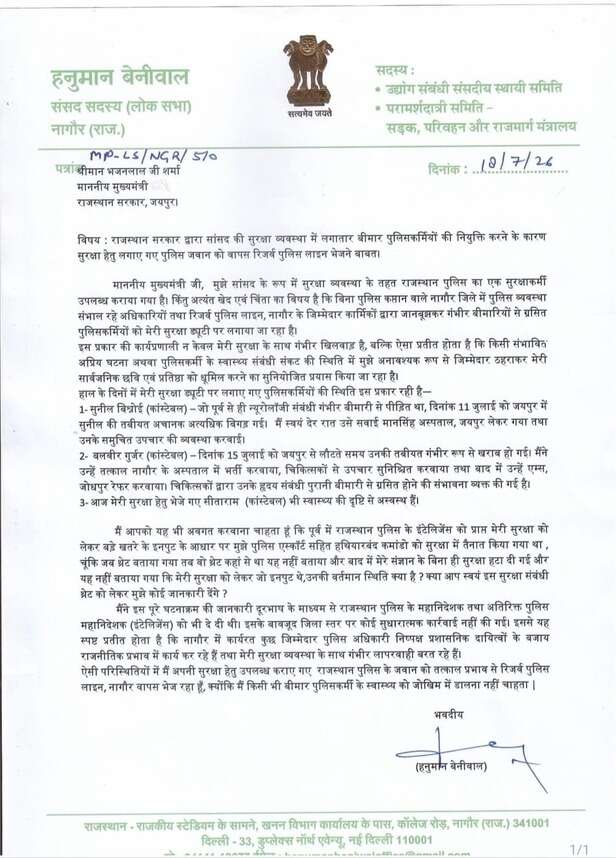 हनुमान बेनीवाल
संसद सदस्य (लोक सभा)
नागौर (राज.)
सत्यमेव जयते
सदस्य :
• उद्योग संबंधी संसदीय स्थायी समिति
• परामर्शदात्री समिति –
सड़क, परिवहन और राजमार्ग मंत्रालय
पत्रांक MP-LS/NGR/510
दिनांक : 18/7/26
श्रीमान भजनलाल जी शर्मा
माननीय मुख्यमंत्री
राजस्थान सरकार, जयपुर।
विषय : राजस्थान सरकार द्वारा सांसद की सुरक्षा व्यवस्था में लगातार बीमार पुलिसकर्मियों की नियुक्ति करने के कारण
सुरक्षा हेतु लगाए गए पुलिस जवान को वापस रिजर्व पुलिस लाइन भेजने बाबत।
माननीय मुख्यमंत्री जी, मुझे सांसद के रूप में सुरक्षा व्यवस्था के तहत राजस्थान पुलिस का एक सुरक्षाकर्मी
उपलब्ध कराया गया है। किंतु अत्यंत खेद एवं चिंता का विषय है कि बिना पुलिस कप्तान वाले नागौर जिले में पुलिस व्यवस्था
संभाल रहे अधिकारियों तथा रिजर्व पुलिस लाइन, नागौर के जिम्मेदार कार्मिकों द्वारा जानबूझकर गंभीर बीमारियों से ग्रसित
पुलिसकर्मियों को मेरी सुरक्षा ड्यूटी पर लगाया जा रहा है।
इस प्रकार की कार्यप्रणाली न केवल मेरी सुरक्षा के साथ गंभीर खिलवाड़ है, बल्कि ऐसा प्रतीत होता है कि किसी संभावित
अप्रिय घटना अथवा पुलिसकर्मी के स्वास्थ्य संबंधी संकट की स्थिति में मुझे अनावश्यक रूप से जिम्मेदार ठहराकर मेरी
सार्वजनिक छवि एवं प्रतिष्ठा को धूमिल करने का सुनियोजित प्रयास किया जा रहा है।
हाल के दिनों में मेरी सुरक्षा ड्यूटी पर लगाए गए पुलिसकर्मियों की स्थिति इस प्रकार रही है—
1- सुनील बिश्नोई (कांस्टेबल) – जो पूर्व से ही न्यूरोलॉजी संबंधी गंभीर बीमारी से पीड़ित था, दिनांक 11 जुलाई को जयपुर में
सुनील की तबीयत अचानक अत्यधिक बिगड़ गई। मैं स्वयं देर रात उसे सवाई मानसिंह अस्पताल, जयपुर लेकर गया तथा
उनके समुचित उपचार की व्यवस्था करवाई।
2- बलवीर गुर्जर (कांस्टेबल) – दिनांक 15 जुलाई को जयपुर से लौटते समय उनकी तबीयत गंभीर रूप से खराब हो गई। मैंने
उन्हें तत्काल नागौर के अस्पताल में भर्ती करवाया, चिकित्सकों से उपचार सुनिश्चित करवाया तथा बाद में उन्हें एम्स,
जोधपुर रेफर करवाया। चिकित्सकों द्वारा उनके हृदय संबंधी पुरानी बीमारी से ग्रसित होने की संभावना व्यक्त की गई है।
3- आज मेरी सुरक्षा हेतु भेजे गए सीताराम (कांस्टेबल) भी स्वास्थ्य की दृष्टि से अस्वस्थ हैं।
मैं आपको यह भी अवगत करवाना चाहता हूं कि पूर्व में राजस्थान पुलिस के इंटेलिजेंस को प्राप्त मेरी सुरक्षा को
लेकर बड़े खतरे के इनपुट के आधार पर मुझे पुलिस एस्कॉर्ट सहित हथियारबंद कमांडो को सुरक्षा में तैनात किया गया था ,
चूंकि जब थ्रेट बताया गया तब वो थ्रेट कहां से था यह नहीं बताया और बाद में मेरे संज्ञान के बिना ही सुरक्षा हटा दी गई और
यह नहीं बताया गया कि मेरी सुरक्षा को लेकर जो इनपुट थे,उनकी वर्तमान स्थिति क्या है ? क्या आप स्वयं इस सुरक्षा संबंधी
थ्रेट को लेकर मुझे कोई जानकारी देंगे ?
मैंने इस पूरे घटनाक्रम की जानकारी दूरभाष के माध्यम से राजस्थान पुलिस के महानिदेशक तथा अतिरिक्त पुलिस
महानिदेशक (इंटेलिजेंस) को भी दे दी थी। इसके बावजूद जिला स्तर पर कोई सुधारात्मक कार्रवाई नहीं की गई। इससे यह
स्पष्ट प्रतीत होता है कि नागौर में कार्यरत कुछ जिम्मेदार पुलिस अधिकारी निष्पक्ष प्रशासनिक दायित्वों के बजाय
राजनीतिक प्रभाव में कार्य कर रहे हैं तथा मेरी सुरक्षा व्यवस्था के साथ गंभीर लापरवाही बरत रहे हैं।
ऐसी परिस्थितियों में मैं अपनी सुरक्षा हेतु उपलब्ध कराए गए राजस्थान पुलिस के जवान को तत्काल प्रभाव से रिजर्व पुलिस
लाइन, नागौर वापस भेज रहा हूँ, क्योंकि मैं किसी भी बीमार पुलिसकर्मी के स्वास्थ्य को जोखिम में डालना नहीं चाहता |
भवदीय
(हनुमान बेनीवाल)
राजस्थान - राजकीय स्टेडियम के सामने, खनन विभाग कार्यालय के पास, कॉलेज रोड़, नागौर (राज.) 341001
दिल्ली - 33, डुप्लेक्स नॉर्थ एवेन्यू, नई दिल्ली 110001
1/1